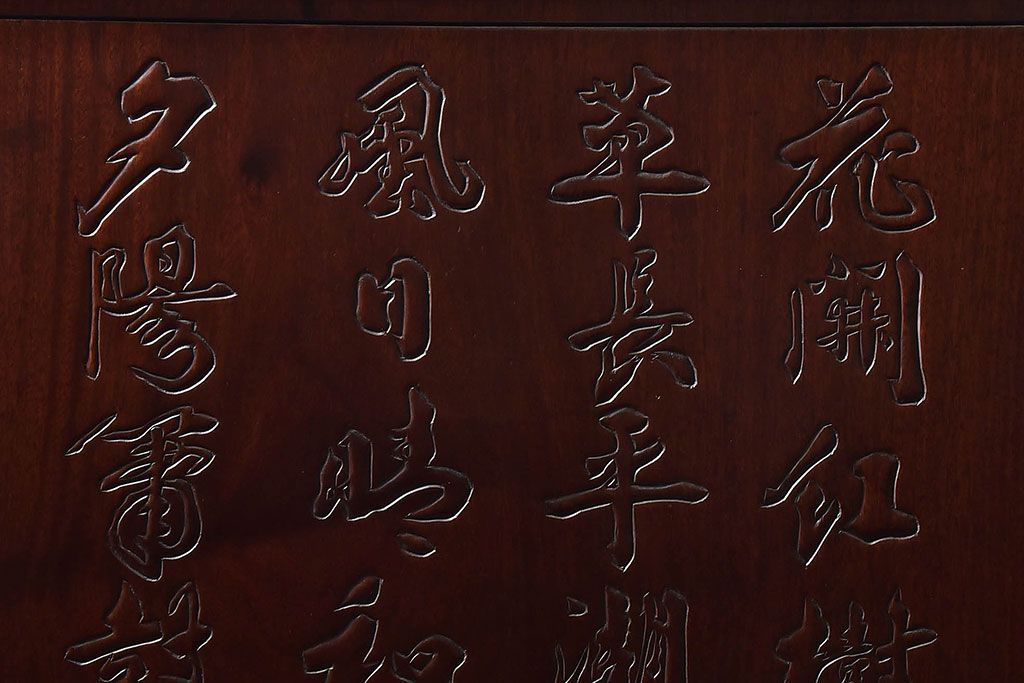 花開紅樹
草長平湖
風日晴和
夕陽簫鼓